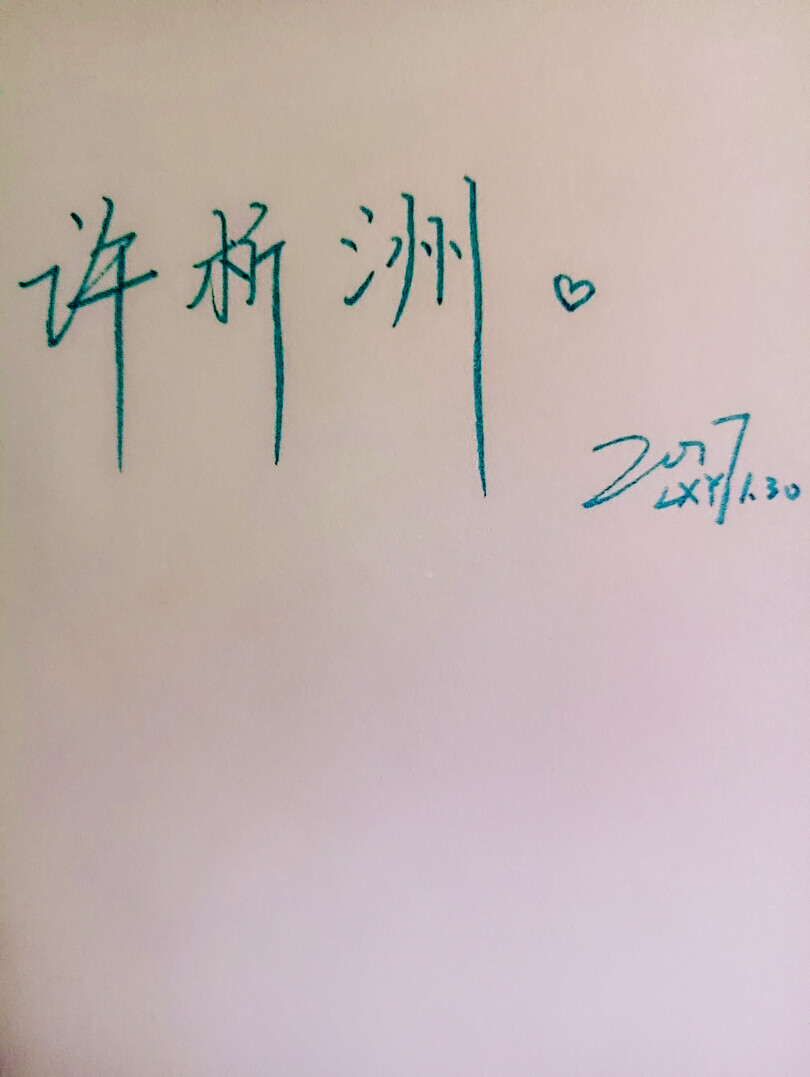 许析洲。♡
2017
LXY 1.30